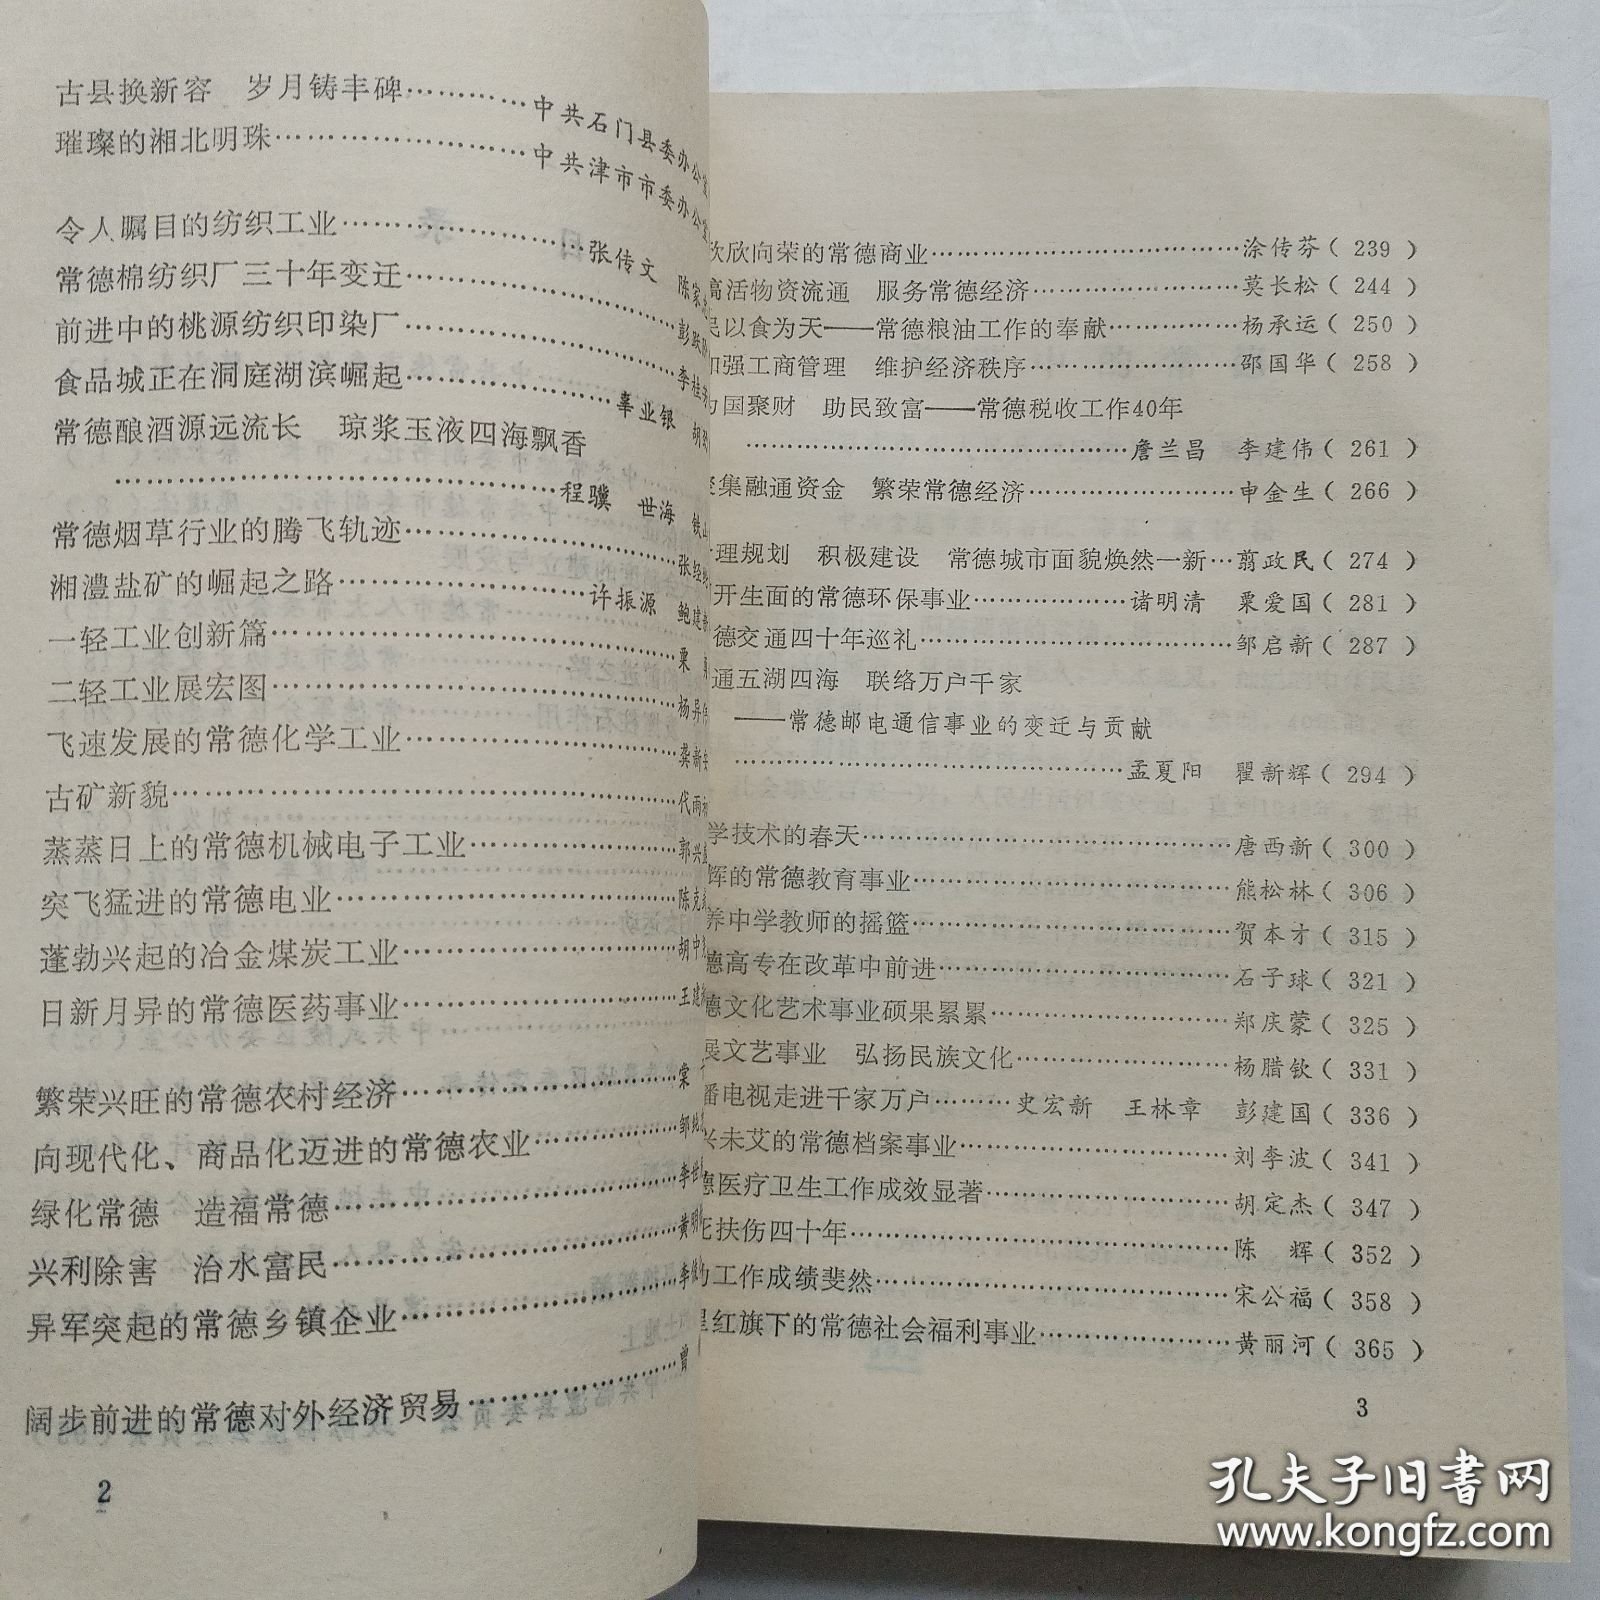 古县换新容　岁月铸丰碑…………中共石门县委办公室
璀璨的湘北明珠……………………中共津市市委办公室
令人瞩目的纺织工业…………………张传文　陈家
常德棉纺织厂三十年变迁……………………彭跃
前进中的桃源纺织印染厂……………………李桂
食品城正在洞庭湖滨崛起………………辜业银　胡
常德酿酒源远流长　琼浆玉液四海飘香
………………………………程骥　世海　铁山
常德烟草行业的腾飞轨迹……………………张经
湘澧盐矿的崛起之路…………………许振源　鲍建
一轻工业创新篇………………………………粟
二轻工业展宏图………………………………杨异
飞速发展的常德化学工业……………………龚新安
古矿新貌………………………………………代雨
蒸蒸日上的常德机械电子工业………………郭兴
突飞猛进的常德电业…………………………陈克
蓬勃兴起的冶金煤炭工业……………………胡中
日新月异的常德医药事业……………………王建
繁荣兴旺的常德农村经济……………………棠
向现代化、商品化迈进的常德农业…………邹
绿化常德　造福常德…………………………李世
兴利除害　治水富民…………………………黄明
异军突起的常德乡镇企业……………………李
阔步前进的常德对外经济贸易………………曾
2
欣向荣的常德商业……………………………涂传芬（239）
活物资流通　服务常德经济…………………莫长松（244）
以食为天——常德粮油工作的奉献……………杨承运（250）
强工商管理　维护经济秩序…………………邵国华（258）
国聚财　助民致富——常德税收工作40年
………………………………………詹兰昌　李建伟（261）
集融通资金　繁荣常德经济…………………申金生（266）
理规划　积极建设　常德城市面貌焕然一新…翦政民（274）
开生面的常德环保事业………………诸明清　粟爱国（281）
德交通四十年巡礼……………………………邹启新（287）
通五湖四海　联络万户千家
——常德邮电通信事业的变迁与贡献
………………………………………孟夏阳　瞿新辉（294）
学技术的春天…………………………………唐西新（300）
辉的常德教育事业……………………………熊松林（306）
养中学教师的摇篮……………………………贺本才（315）
德高专在改革中前进…………………………石子球（321）
德文化艺术事业硕果累累……………………郑庆蒙（325）
展文艺事业　弘扬民族文化…………………杨腊钦（331）
播电视走进千家万户………史宏新　王林章　彭建国（336）
兴未艾的常德档案事业………………………刘李波（341）
德医疗卫生工作成效显著……………………胡定杰（347）
扶伤四十年……………………………………陈　辉（352）
工作成绩斐然…………………………………宋公福（358）
星红旗下的常德社会福利事业………………黄丽河（365）
3
孔夫子旧书网
www.kongfz.com